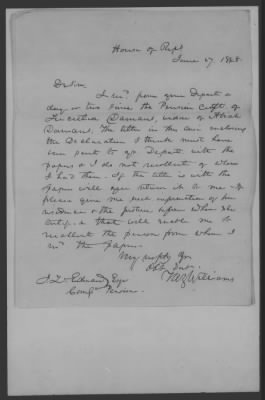 House of Rep
June 27, 1848
Dr Sir.
I recd from your Depart a
day or two since the Pension Certft. of
Lucretia Damans, widow of
Damans. The letter in this case enclosing
the Declaration I think must have
been sent to yr Depart with the
papers & I do not recollect of whom
I had them. If the letter is with the
papers will you return it to me - If
please give me such information of her
residence & the justices before whom she
as that will enable me to
recollect the person from whom I
recd the papers.
Very respty Yrs
Obt Servt
Williams
J L Edwards Esqr
Comr Pensions